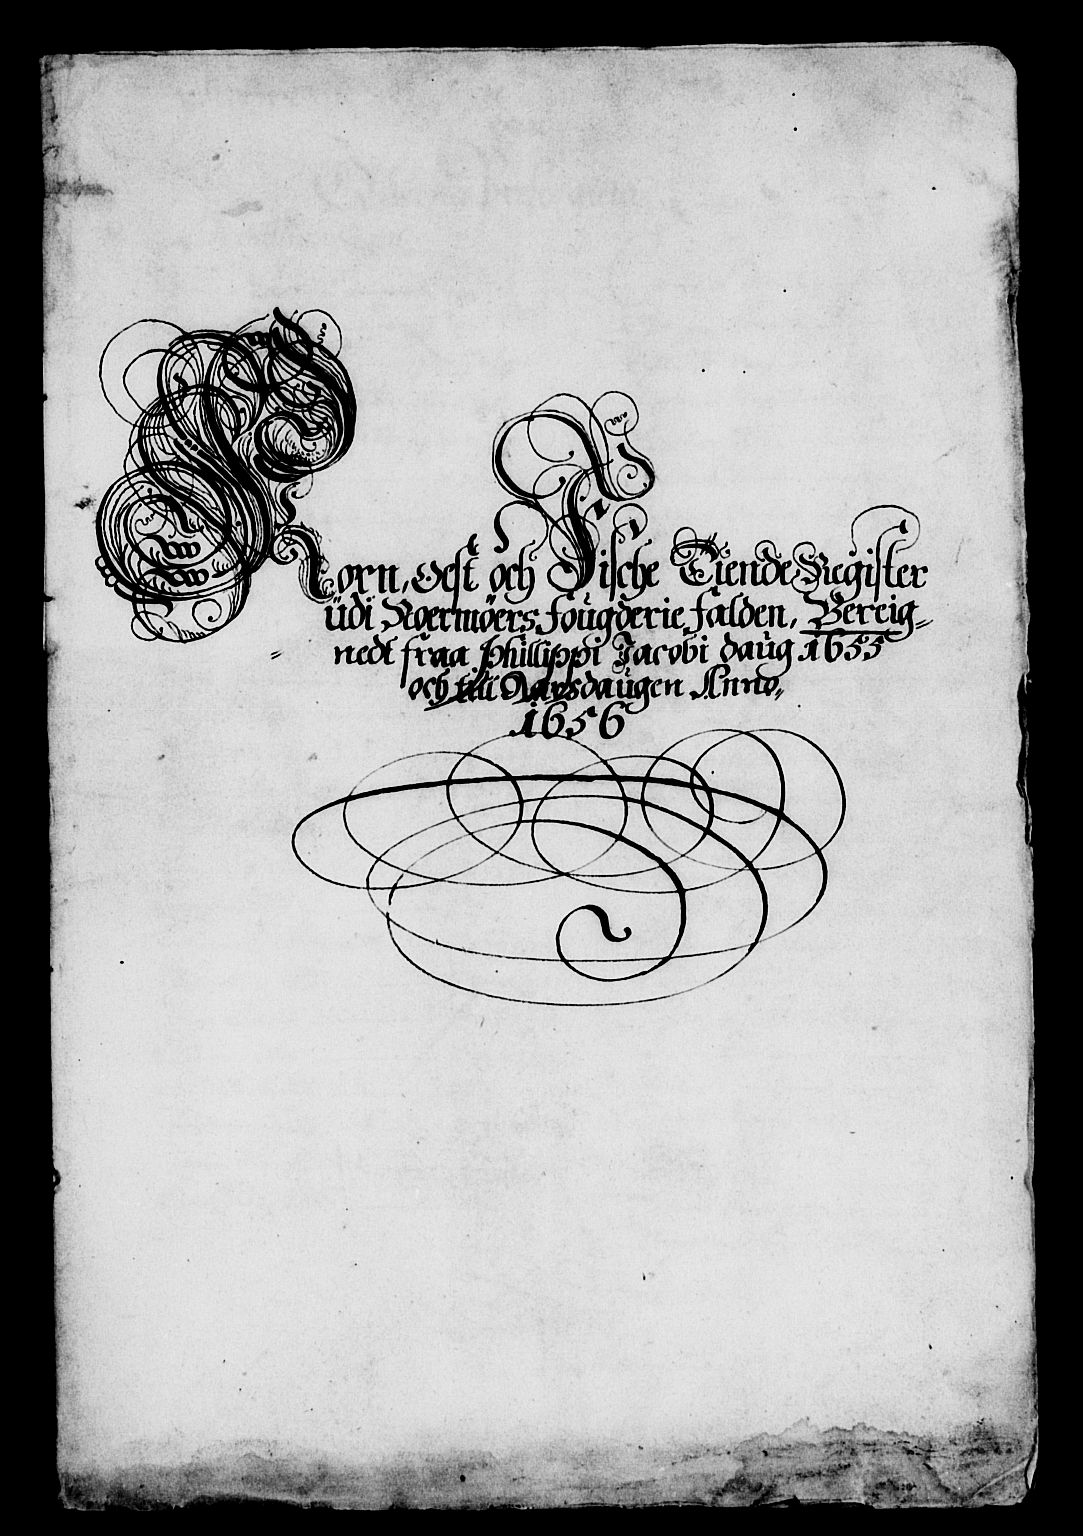 Korn, Oest och Fische Tiende Register
üdi Noermöers fougderie falden, Bereig-
nedt fraa Phillippi Jacobi daüg 1655
och till Aarsdaügen Anno,
1656